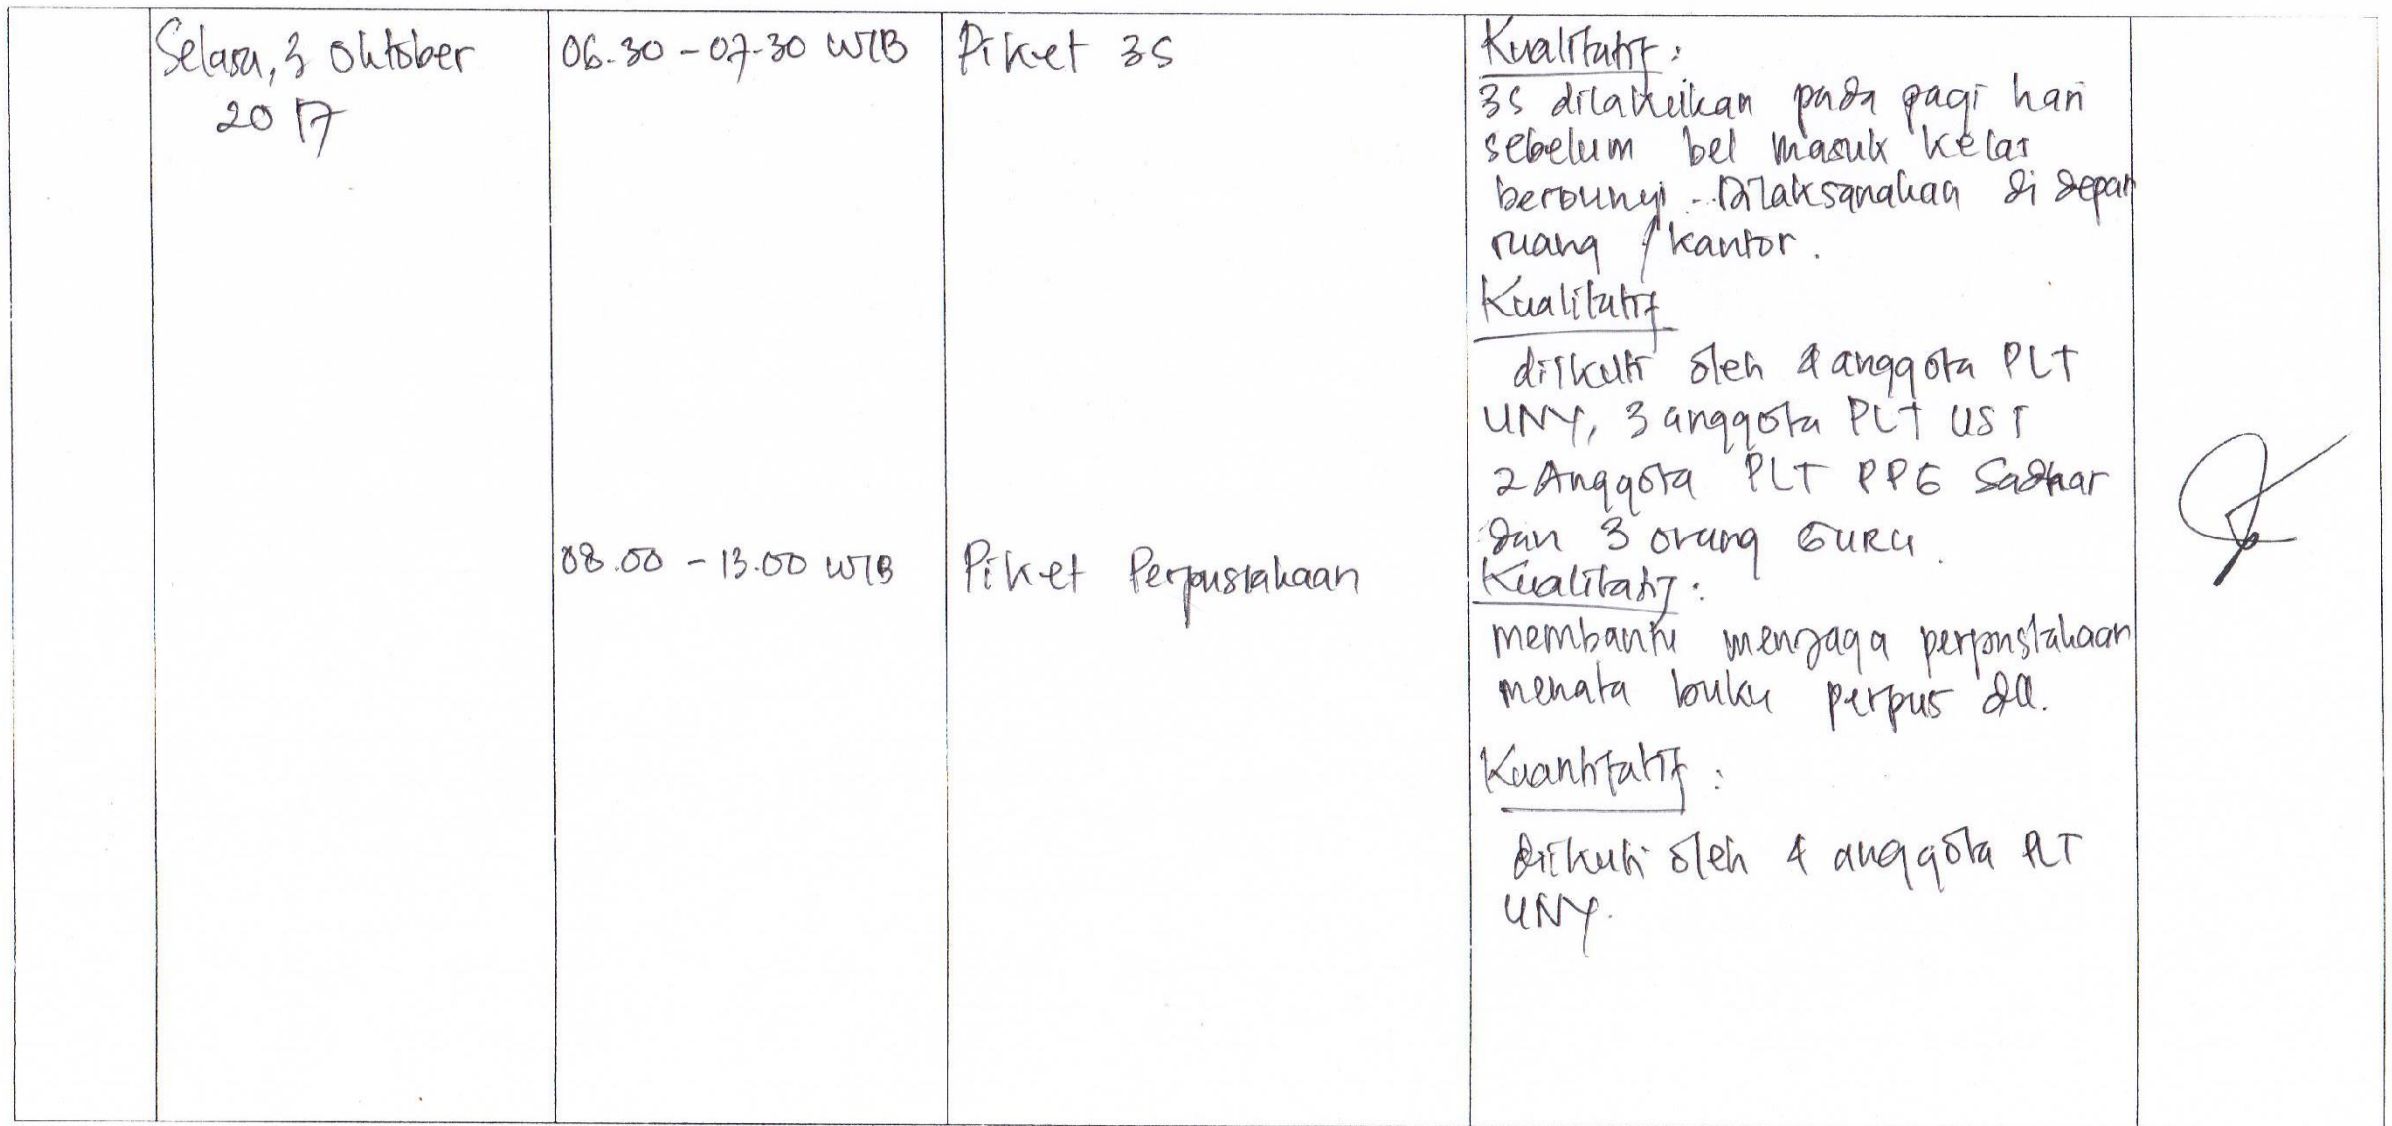 Selasa, 3 Oktober
2017
06.30 - 07.30 WIB
Piket 3S
Kualitatif :
3S dilakukan pada pagi hari
sebelum bel masuk kelas
berbunyi. Dilaksanakan di depan
ruang / kantor.
Kualitatif
diikuti oleh 4 anggota PLT
UNY, 3 anggota PLT UST
2 Anggota PLT PPG Sadhar
dan 3 orang Guru.
08.00 - 13.00 WIB
Piket Perpustakaan
Kualitatif :
membantu menjaga perpustakaan
menata buku perpus dll.
Kuantitatif :
diikuti oleh 4 anggota PLT
UNY.